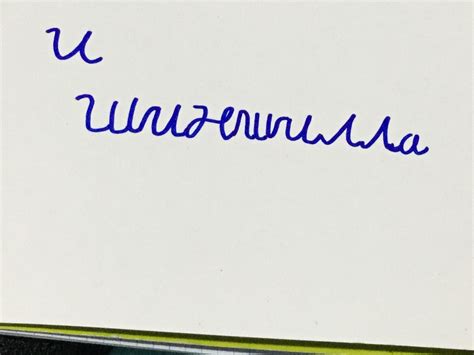 и
шиншилла